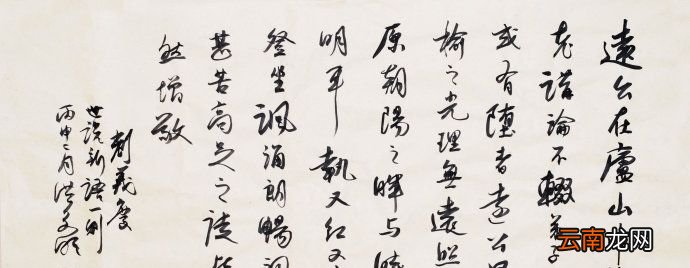 遠公在廬山中
老講論不輟弟子
或有墮者遠公曰
榆之光理無遠照
原朝陽之暉與時
明耳執又經又
登坐諷誦朗暢詞
甚苦高足之徒皆
然增敬
劉義慶
世說新語一則
丙申
云南龙网